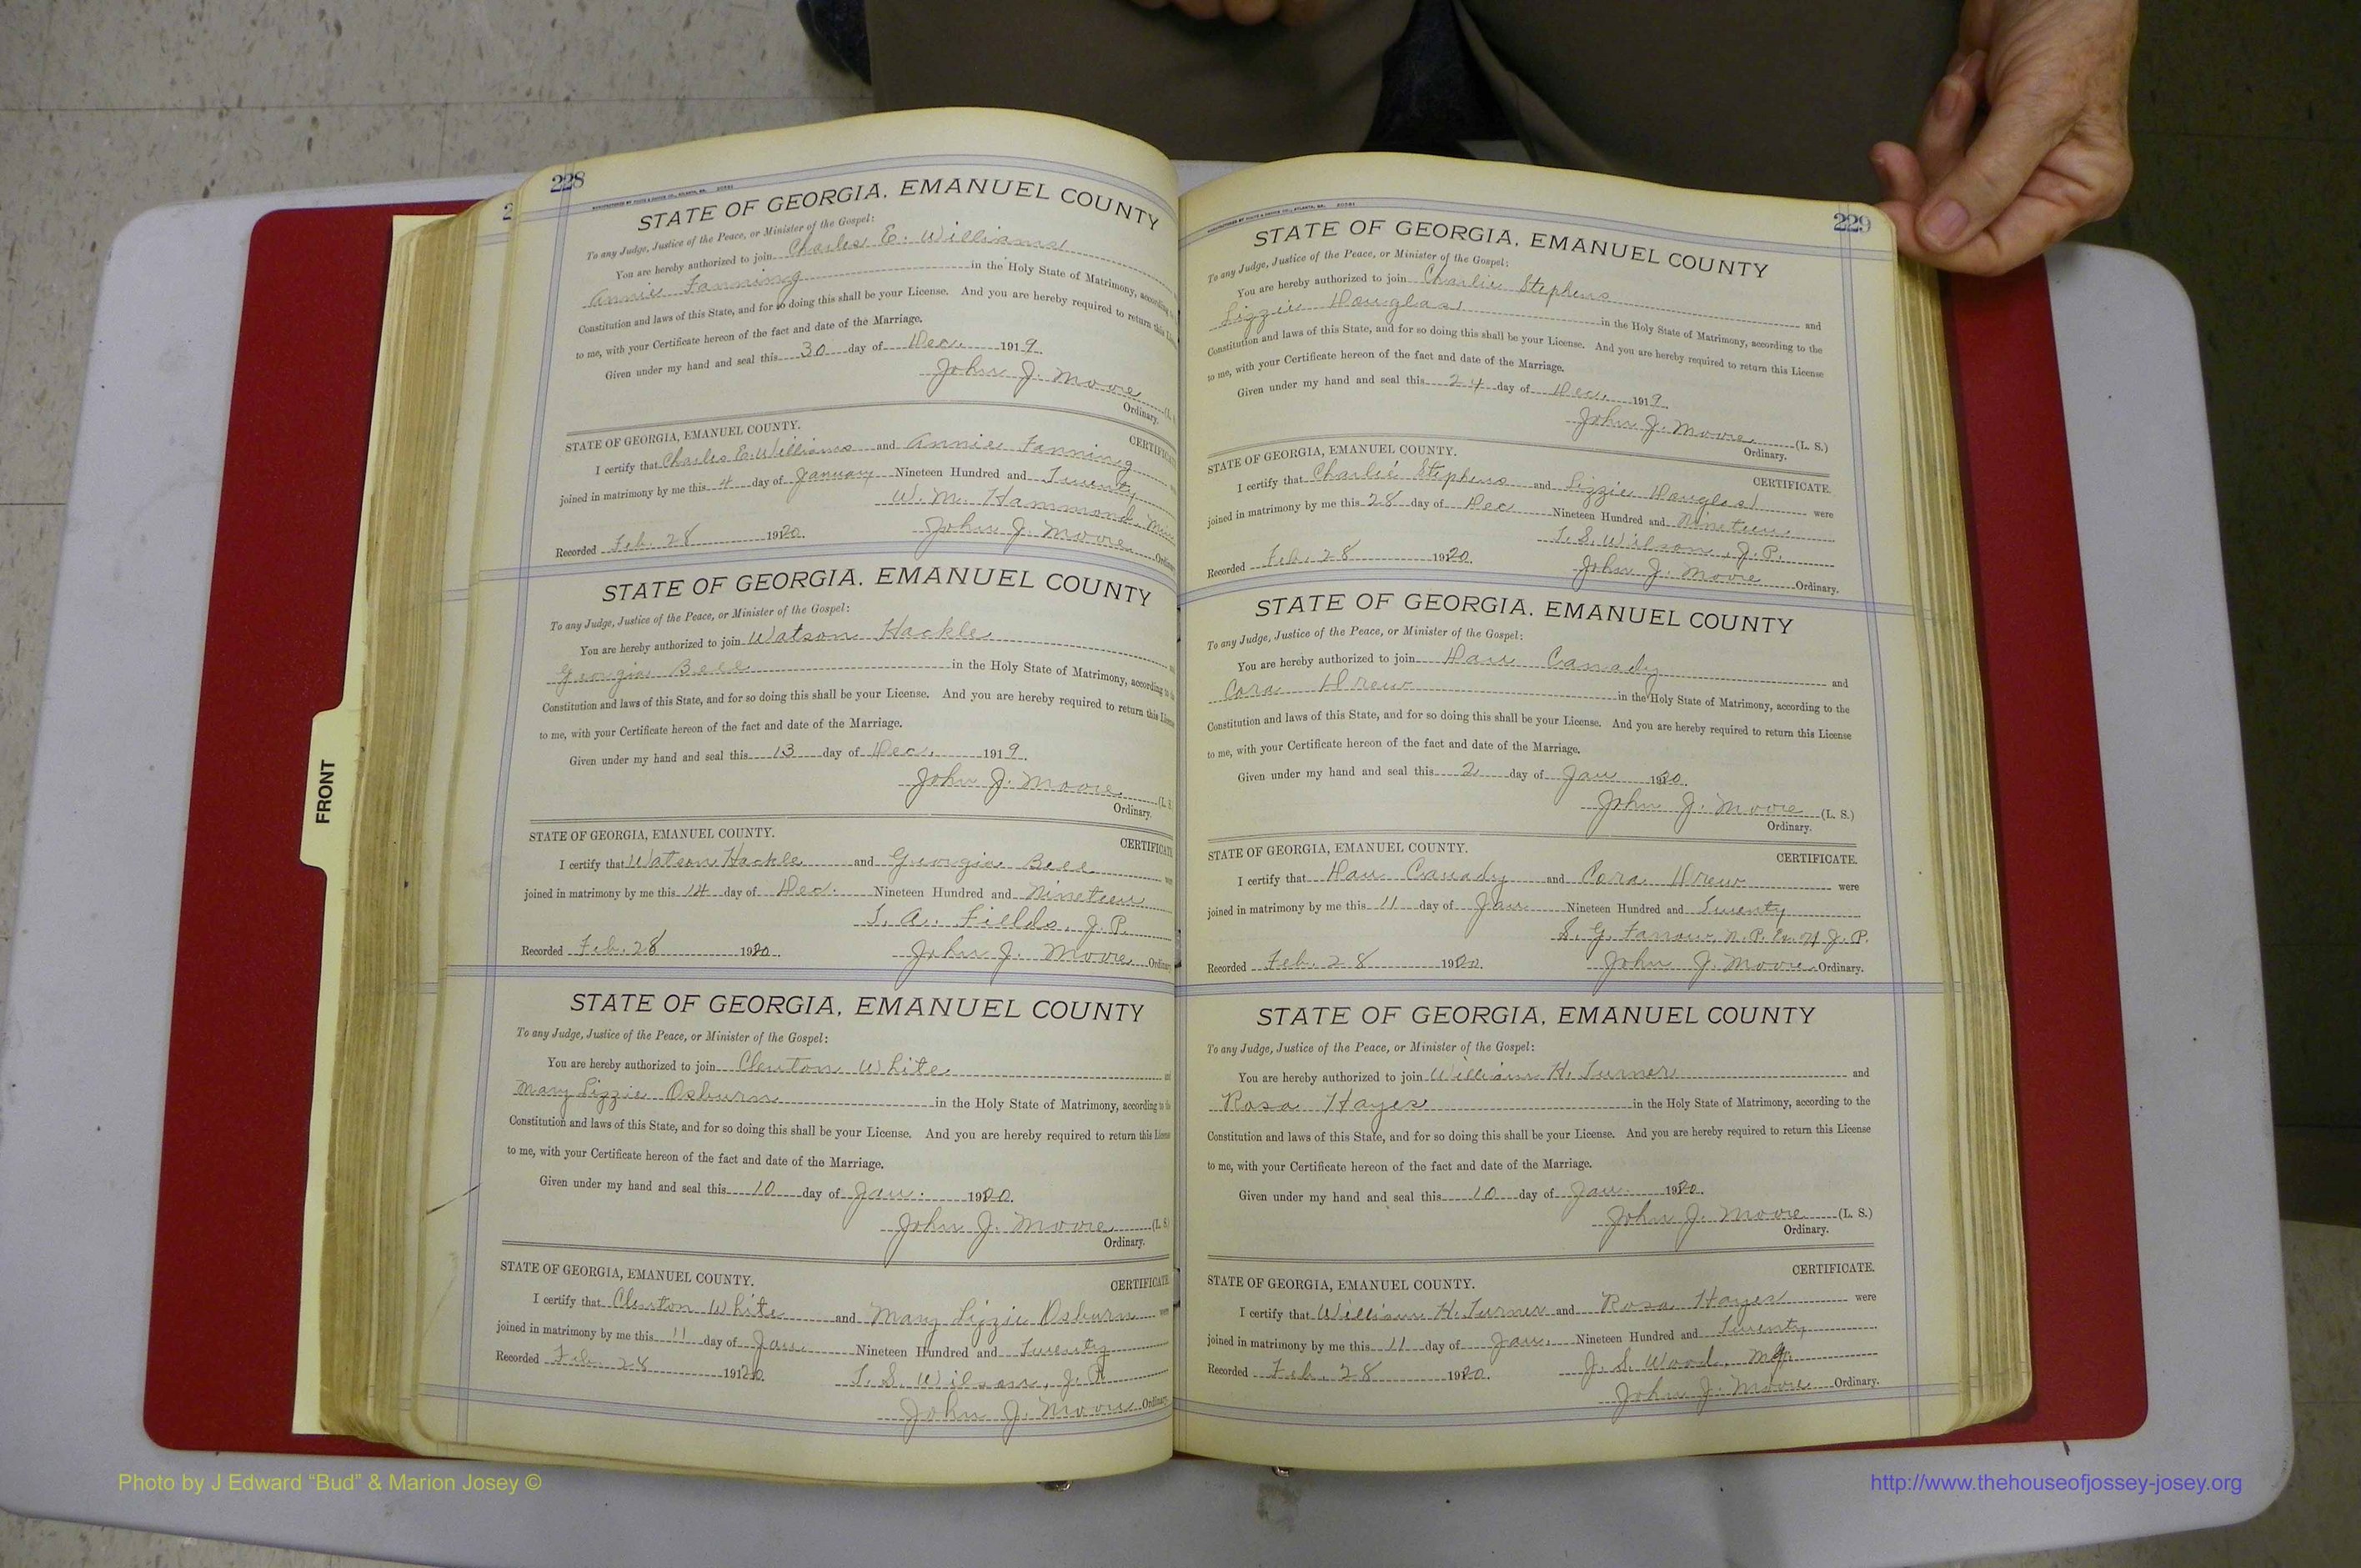 228
STATE OF GEORGIA, EMANUEL COUNTY
To any Judge, Justice of the Peace, or Minister of the Gospel:
You are hereby authorized to join Charles E. Williams
Annie Fanning in the Holy State of Matrimony, according
Constitution and laws of this State, and for so doing this shall be your License. And you are hereby required to return this
to me, with your Certificate hereon of the fact and date of the Marriage.
Given under my hand and seal this 30 day of Dec. 1919.
John J. Moore (L. S
Ordinary.
STATE OF GEORGIA, EMANUEL COUNTY. CERTIFICATE
I certify that Charles E. Williams and Annie Fanning
joined in matrimony by me this 4 day of January Nineteen Hundred and Twenty
W. M. Hammond, Min
Recorded Feb. 28 1920. John J. Moore Ordinary
STATE OF GEORGIA. EMANUEL COUNTY
To any Judge, Justice of the Peace, or Minister of the Gospel:
You are hereby authorized to join Watson Hackle and
Georgia Bell in the Holy State of Matrimony, according to the
Constitution and laws of this State, and for so doing this shall be your License. And you are hereby required to return this License
to me, with your Certificate hereon of the fact and date of the Marriage.
Given under my hand and seal this 13 day of Dec. 1919.
John J. Moore (L. S
Ordinary.
STATE OF GEORGIA, EMANUEL COUNTY. CERTIFICATE
I certify that Watson Hackle and Georgia Bell were
joined in matrimony by me this 14 day of Dec. Nineteen Hundred and Nineteen
S. A. Fields, J. P.
Recorded Feb. 28 1920. John J. Moore Ordinary
STATE OF GEORGIA, EMANUEL COUNTY
To any Judge, Justice of the Peace, or Minister of the Gospel:
You are hereby authorized to join Clenton White and
Mary Lizzie Osburn in the Holy State of Matrimony, according to the
Constitution and laws of this State, and for so doing this shall be your License. And you are hereby required to return this License
to me, with your Certificate hereon of the fact and date of the Marriage.
Given under my hand and seal this 10 day of Jan. 1920.
John J. Moore (L. S)
Ordinary.
STATE OF GEORGIA, EMANUEL COUNTY. CERTIFICATE
I certify that Clenton White and Mary Lizzie Osburn were
joined in matrimony by me this 11 day of Jan. Nineteen Hundred and Twenty
Recorded Feb. 28 1920. T. S. Wilson, J. P.
John J. Moore Ordinary
229
STATE OF GEORGIA, EMANUEL COUNTY
To any Judge, Justice of the Peace, or Minister of the Gospel:
You are hereby authorized to join Charlie Stephens and
Lizzie Douglas in the Holy State of Matrimony, according to the
Constitution and laws of this State, and for so doing this shall be your License. And you are hereby required to return this License
to me, with your Certificate hereon of the fact and date of the Marriage.
Given under my hand and seal this 24 day of Dec. 1919.
John J. Moore (L. S.)
Ordinary.
STATE OF GEORGIA, EMANUEL COUNTY. CERTIFICATE.
I certify that Charlie Stephens and Lizzie Douglas were
joined in matrimony by me this 28 day of Dec Nineteen Hundred and Nineteen
T. S. Wilson, J. P.
Recorded Feb. 28 1920. John J. Moore Ordinary.
STATE OF GEORGIA. EMANUEL COUNTY
To any Judge, Justice of the Peace, or Minister of the Gospel:
You are hereby authorized to join Dan Canady and
Cora Drew in the Holy State of Matrimony, according to the
Constitution and laws of this State, and for so doing this shall be your License. And you are hereby required to return this License
to me, with your Certificate hereon of the fact and date of the Marriage.
Given under my hand and seal this 2 day of Jan 1920.
John J. Moore (L. S.)
Ordinary.
STATE OF GEORGIA, EMANUEL COUNTY. CERTIFICATE.
I certify that Dan Canady and Cora Drew were
joined in matrimony by me this 11 day of Jan Nineteen Hundred and Twenty
S. G. N. P. J. P.
Recorded Feb. 28 1920. John J. Moore Ordinary.
STATE OF GEORGIA, EMANUEL COUNTY
To any Judge, Justice of the Peace, or Minister of the Gospel:
You are hereby authorized to join William H. Turner and
Rosa Hayes in the Holy State of Matrimony, according to the
Constitution and laws of this State, and for so doing this shall be your License. And you are hereby required to return this License
to me, with your Certificate hereon of the fact and date of the Marriage.
Given under my hand and seal this 10 day of Jan. 1920.
John J. Moore (L. S.)
Ordinary.
STATE OF GEORGIA, EMANUEL COUNTY. CERTIFICATE.
I certify that William H. Turner and Rosa Hayes were
joined in matrimony by me this 11 day of Jan. Nineteen Hundred and Twenty
Recorded Feb. 28 1920. J. S. Wood,
John J. Moore Ordinary.
FRONT
Photo by J Edward “Bud” & Marion Josey ©
http://www.thehouseofjossey-josey.org